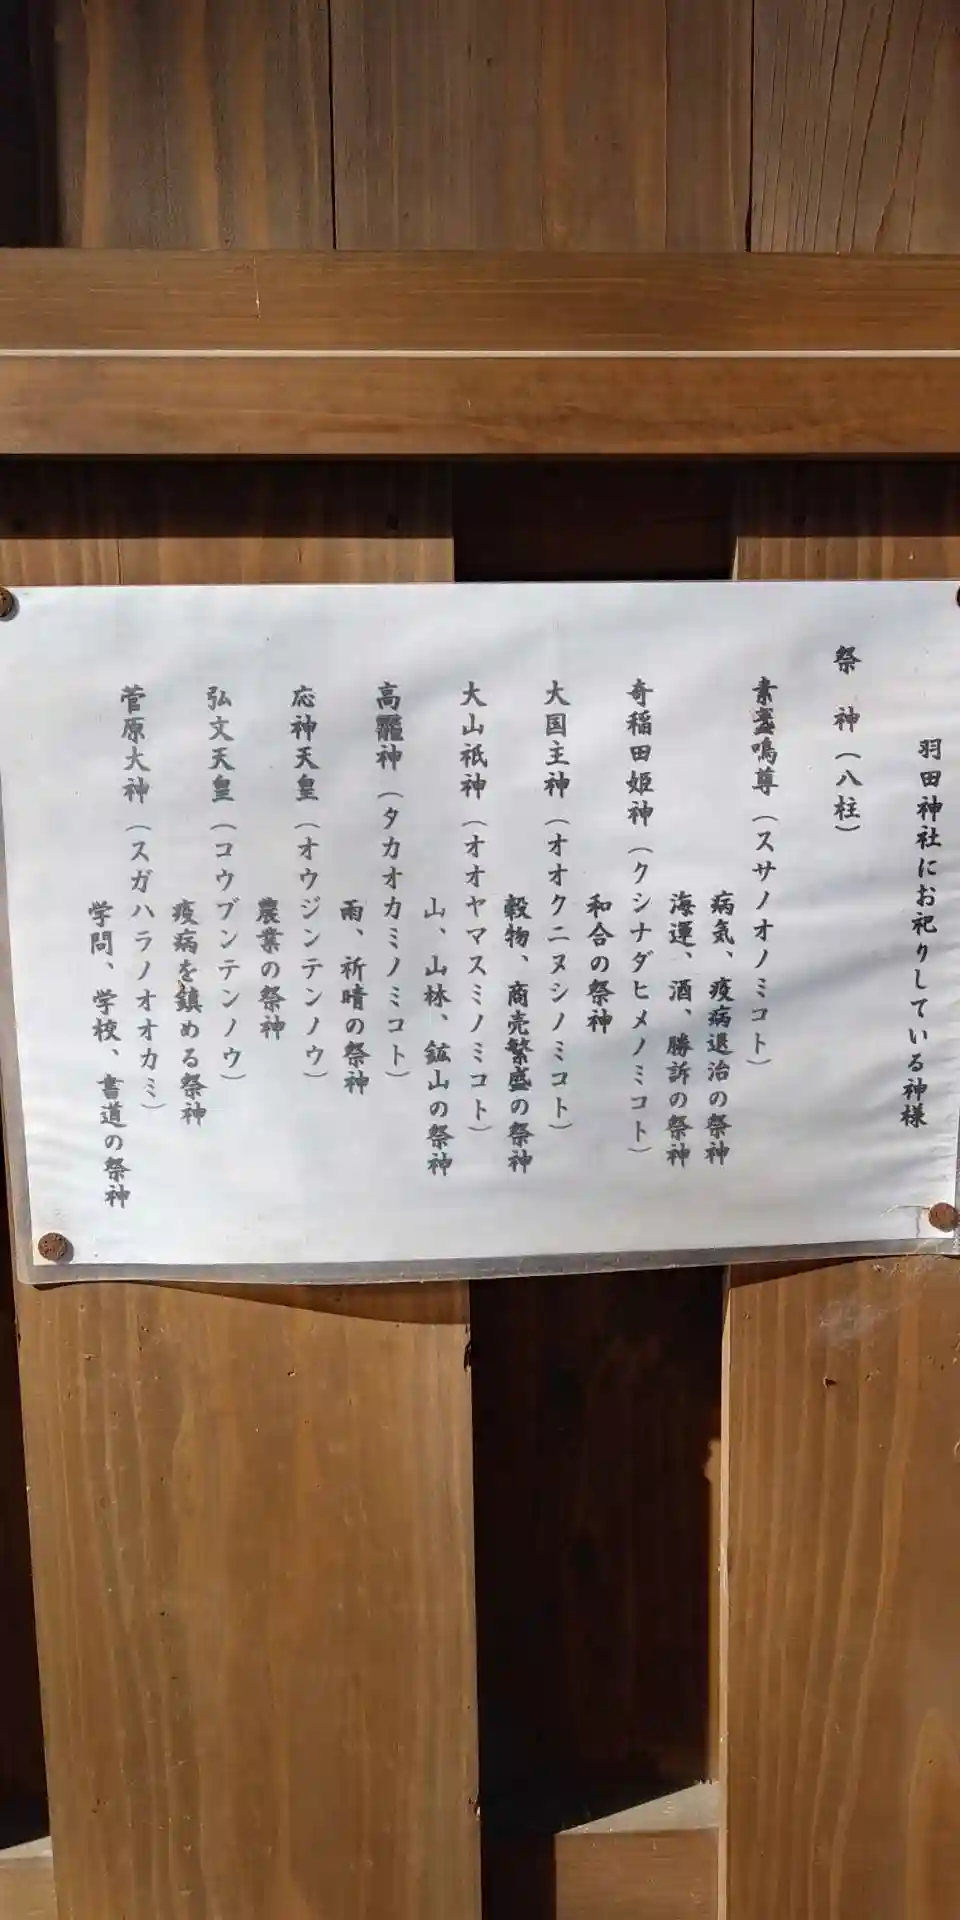 羽田神社にお祀りしている神様
祭 神（八柱）
素盞嗚尊（スサノオノミコト）
病気、疫病退治の祭神
海運、酒、勝訴の祭神
奇稲田姫神（クシナダヒメノミコト）
和合の祭神
大国主神（オオクニヌシノミコト）
穀物、商売繁盛の祭神
大山祇神（オオヤマスミノミコト）
山、山林、鉱山の祭神
高龗神（タカオカミノミコト）
雨、祈晴の祭神
応神天皇（オウジンテンノウ）
農業の祭神
弘文天皇（コウブンテンノウ）
疫病を鎮める祭神
菅原大神（スガハラノオオカミ）
学問、学校、書道の祭神